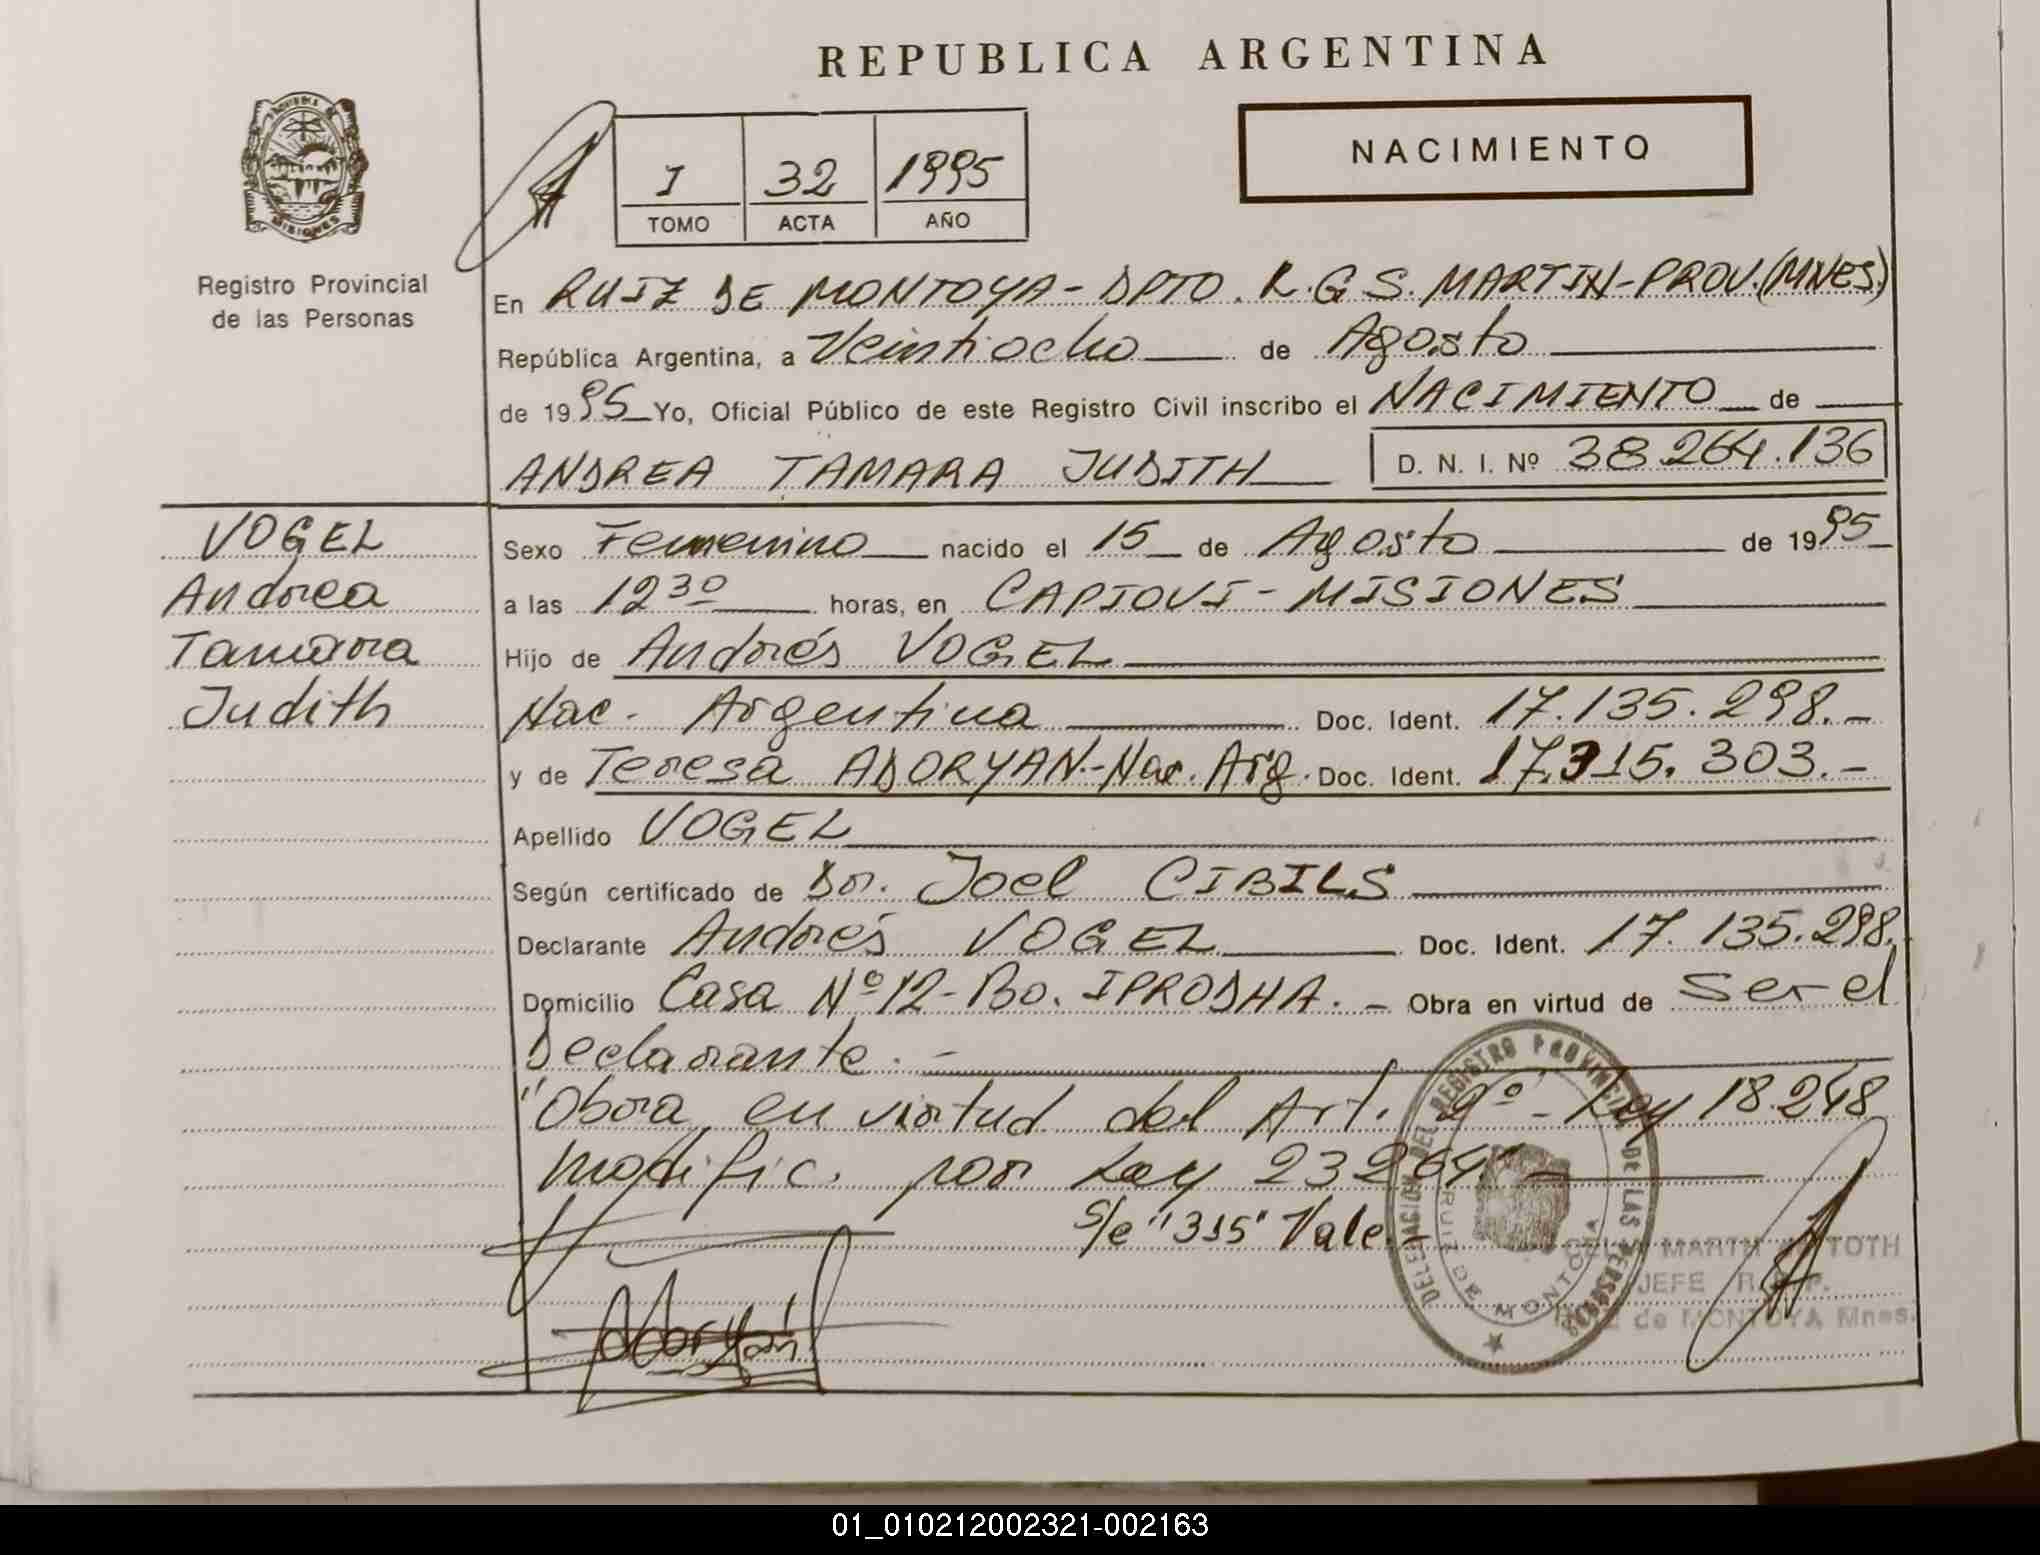 REPUBLICA ARGENTINA
NACIMIENTO
I 32 1995
TOMO ACTA AÑO
MISIONES
Registro Provincial
de las Personas
En RUIZ DE MONTOYA - DPTO. L.G.S. MARTIN - PROV. (MNES.)
República Argentina, a Veintiocho de Agosto
de 1995 Yo, Oficial Público de este Registro Civil inscribo el NACIMIENTO de
ANDREA TAMARA JUDITH D. N. I. Nº 38.264.136
VOGEL
Andrea
Tamara
Judith
Sexo Femenino nacido el 15 de Agosto de 1995
a las 12 30 horas, en CAPIOVI - MISIONES
Hijo de Andrés VOGEL
Nac. Argentina Doc. Ident. 17.135.298.-
y de Teresa ADORYAN.- Nac. Arg. Doc. Ident. 17.315.303.-
Apellido VOGEL
Según certificado de Dr. Joel CIBILS
Declarante Andrés VOGEL Doc. Ident. 17.135.298.
Domicilio Casa Nº 12 - Bo. IPRODHA. - Obra en virtud de Ser el
Declarante. -
"Obra en virtud del Art. 2º - Ley 18.248
modific. por Ley 23264"
S/e "315" Vale.
DELEGACION DEL REGISTRO PROVINCIAL DE LAS PERSONAS
RUIZ DE MONTOYA
TOTH
JEFE R. P. P.
de MONTOYA Mnes.
01_010212002321-002163